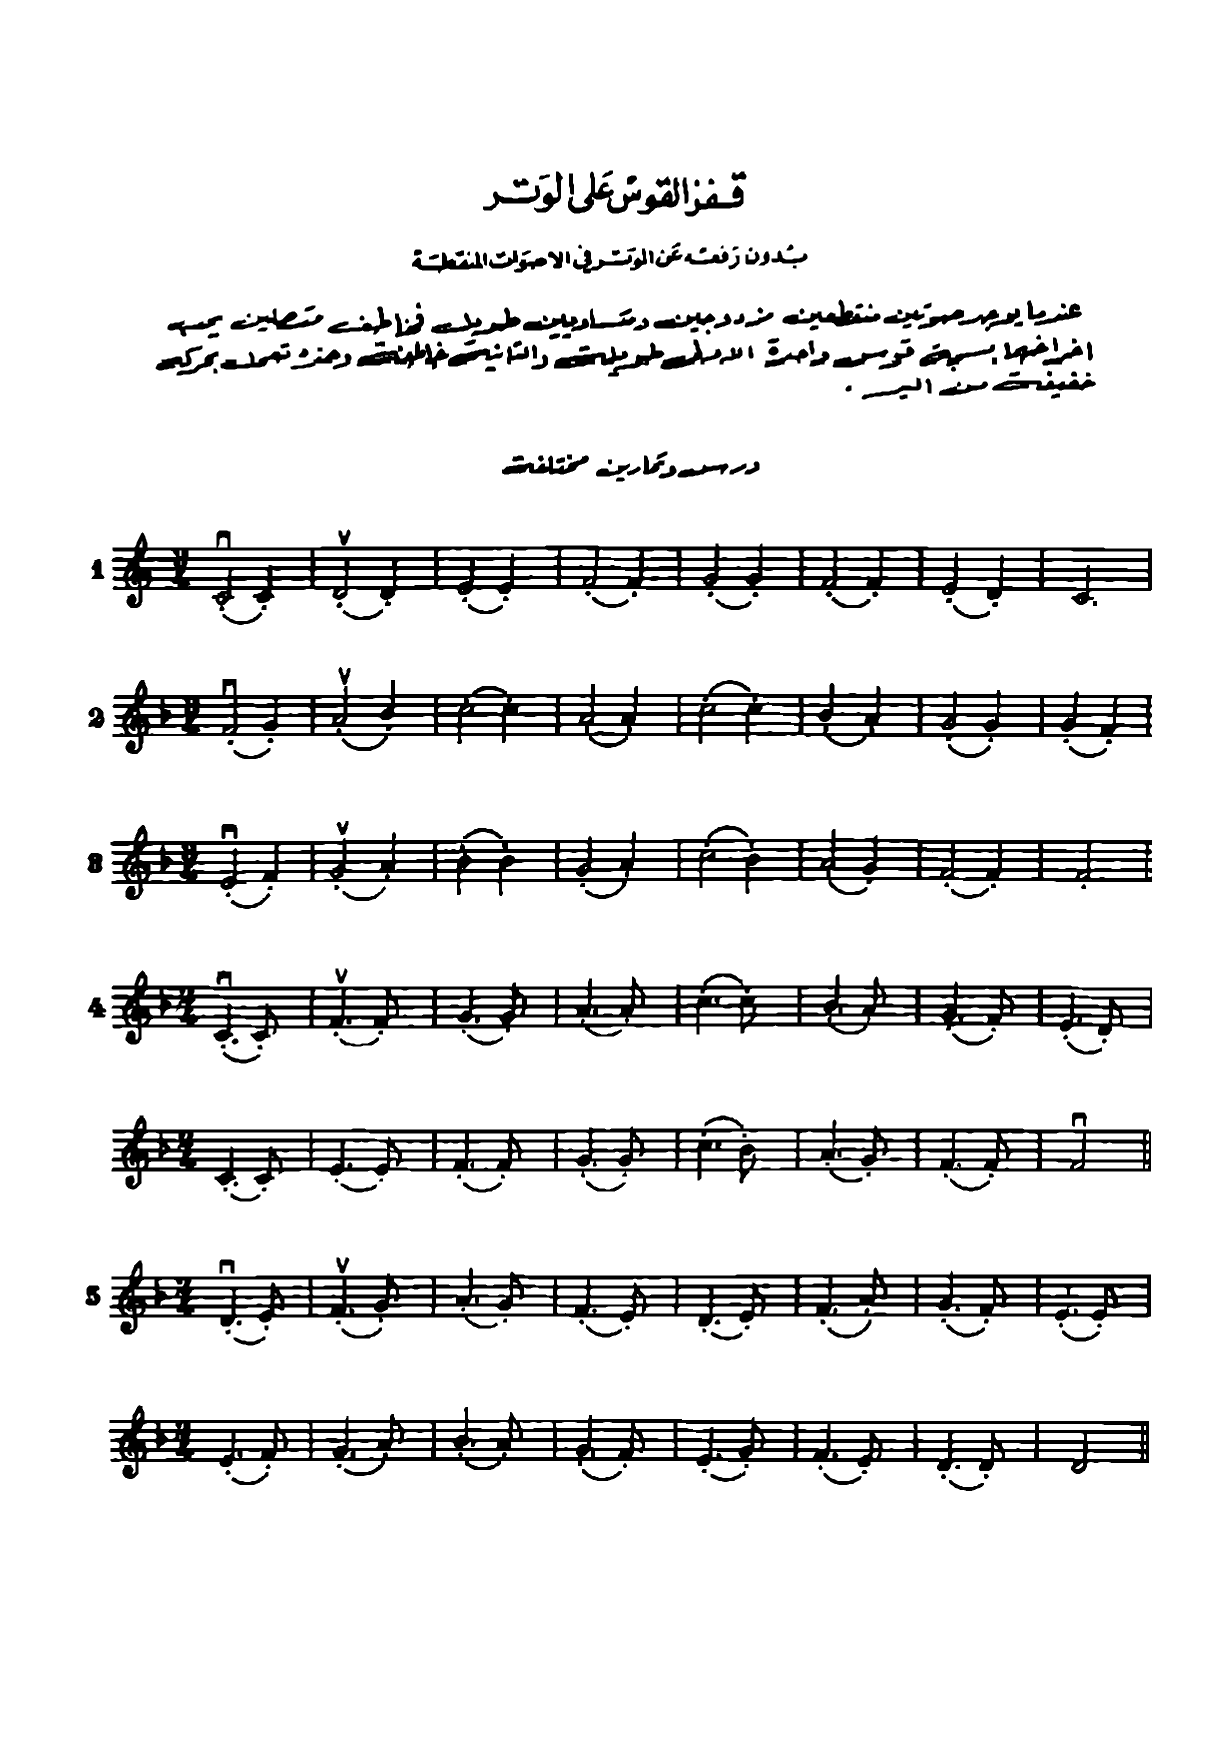 قفز القوس على الوتر
بدون رفعه عن الوتر في الاصوات المنقطة
عندما يوجد صوتين منقطعين مزدوجين ومتساويين طويل فخاطف متصلين يجب
اخراجها بسحبة قوس واحدة الاولى طويلة والثانية خاطفة وهذه تعمل بحركة
خفيفة من اليد .
دروس وتمارين مختلفة
1
2
3
4
5